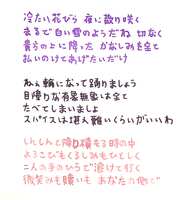 冷たい花びら 夜に散り咲く
まるで白い雪のようだね 切なく
貴方の上に降った かなしみを全て
払いのけてあげたいだけ
ねぇ輪になって踊りましょう
目障りな有象無象は全て
たべてしまいましょ
スパイスは堪え難いくらいがいいわ
しんしんと降り積もる時の中
よろこびもくるしみもひとしく
二人の手のひらで溶けて行く
微笑みも贖いも あなたの側で